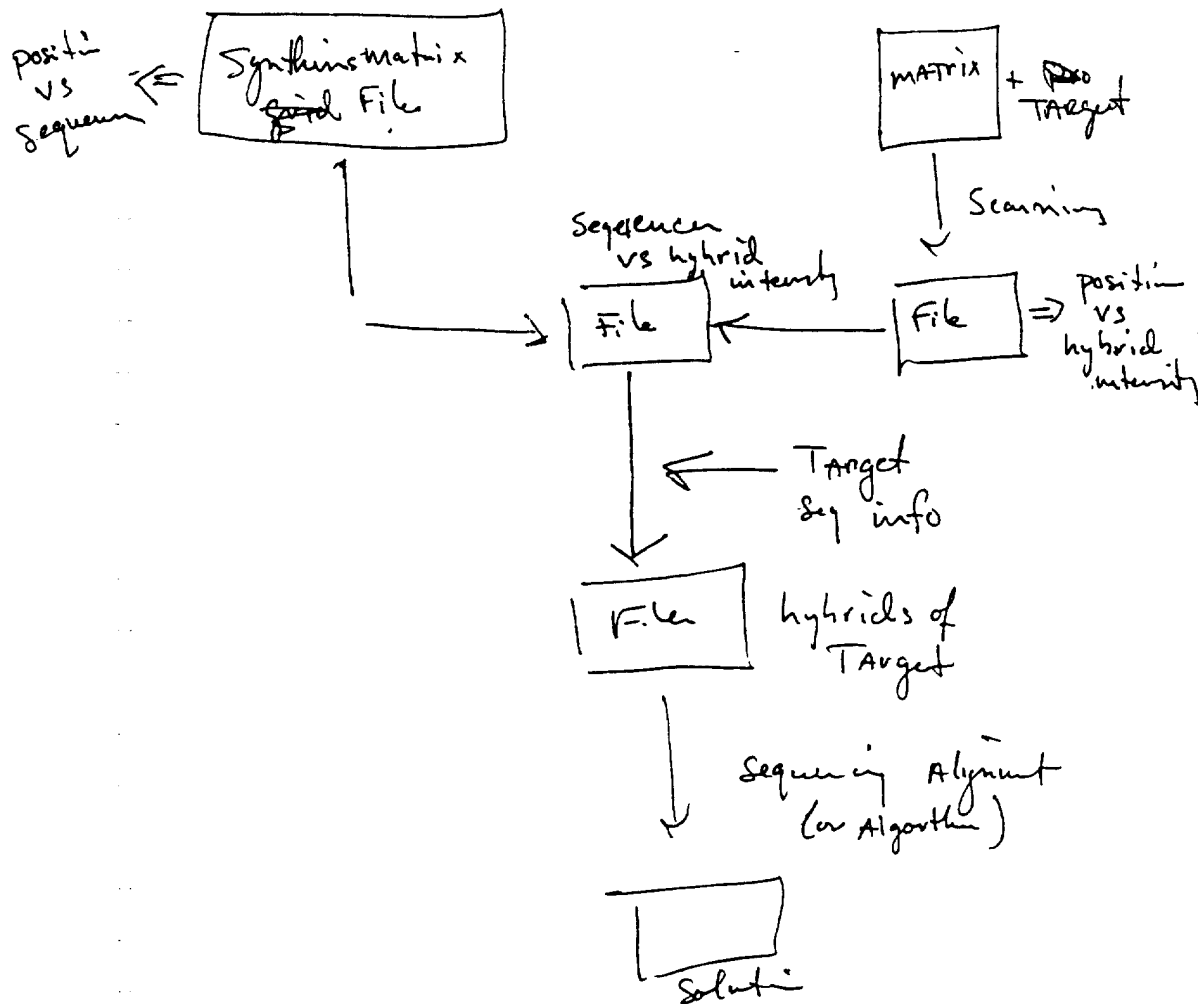 position
vs
sequence
Synthesis matrix
File
MATRIX
+
TARget
Scanning
Sequences
vs hybrid
intensity
File
File
position
vs
hybrid
intensity
TArget
Seq info
File
hybrids of
TArget
Sequencing Alignment
(or Algorithm)
Solution